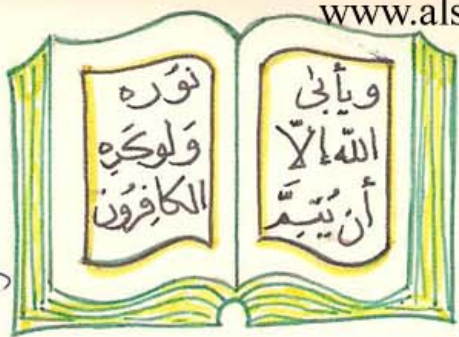 www.als
ويأبى
الله إلّا
أن يُتِمَّ
نوُره
وَلوكَرِه
الكافِرُون